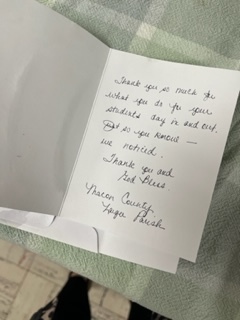 Thank you so much for
what you do for your
students day in and out.
Just so you know —
we noticed.
Thank you and
God Bless.
Macon County
Prayer Parish